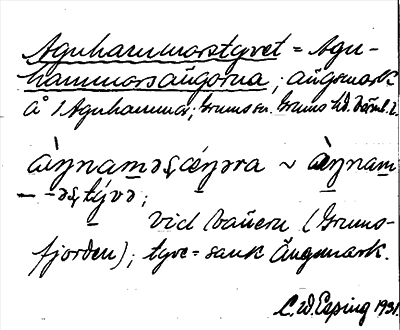 Agnhammarstyvet = Agn-
hammarsängorna, ängsmark
å 1 Agnhammar, Grums sn. Grums hd. Värml. l.
àŋnaməʂæ̀ŋəra ~ àŋnam
- -əʂtývə;
vid Vänern (Grums-
fjorden); tyve = sank ängsmark.
C. W. Esping 1931